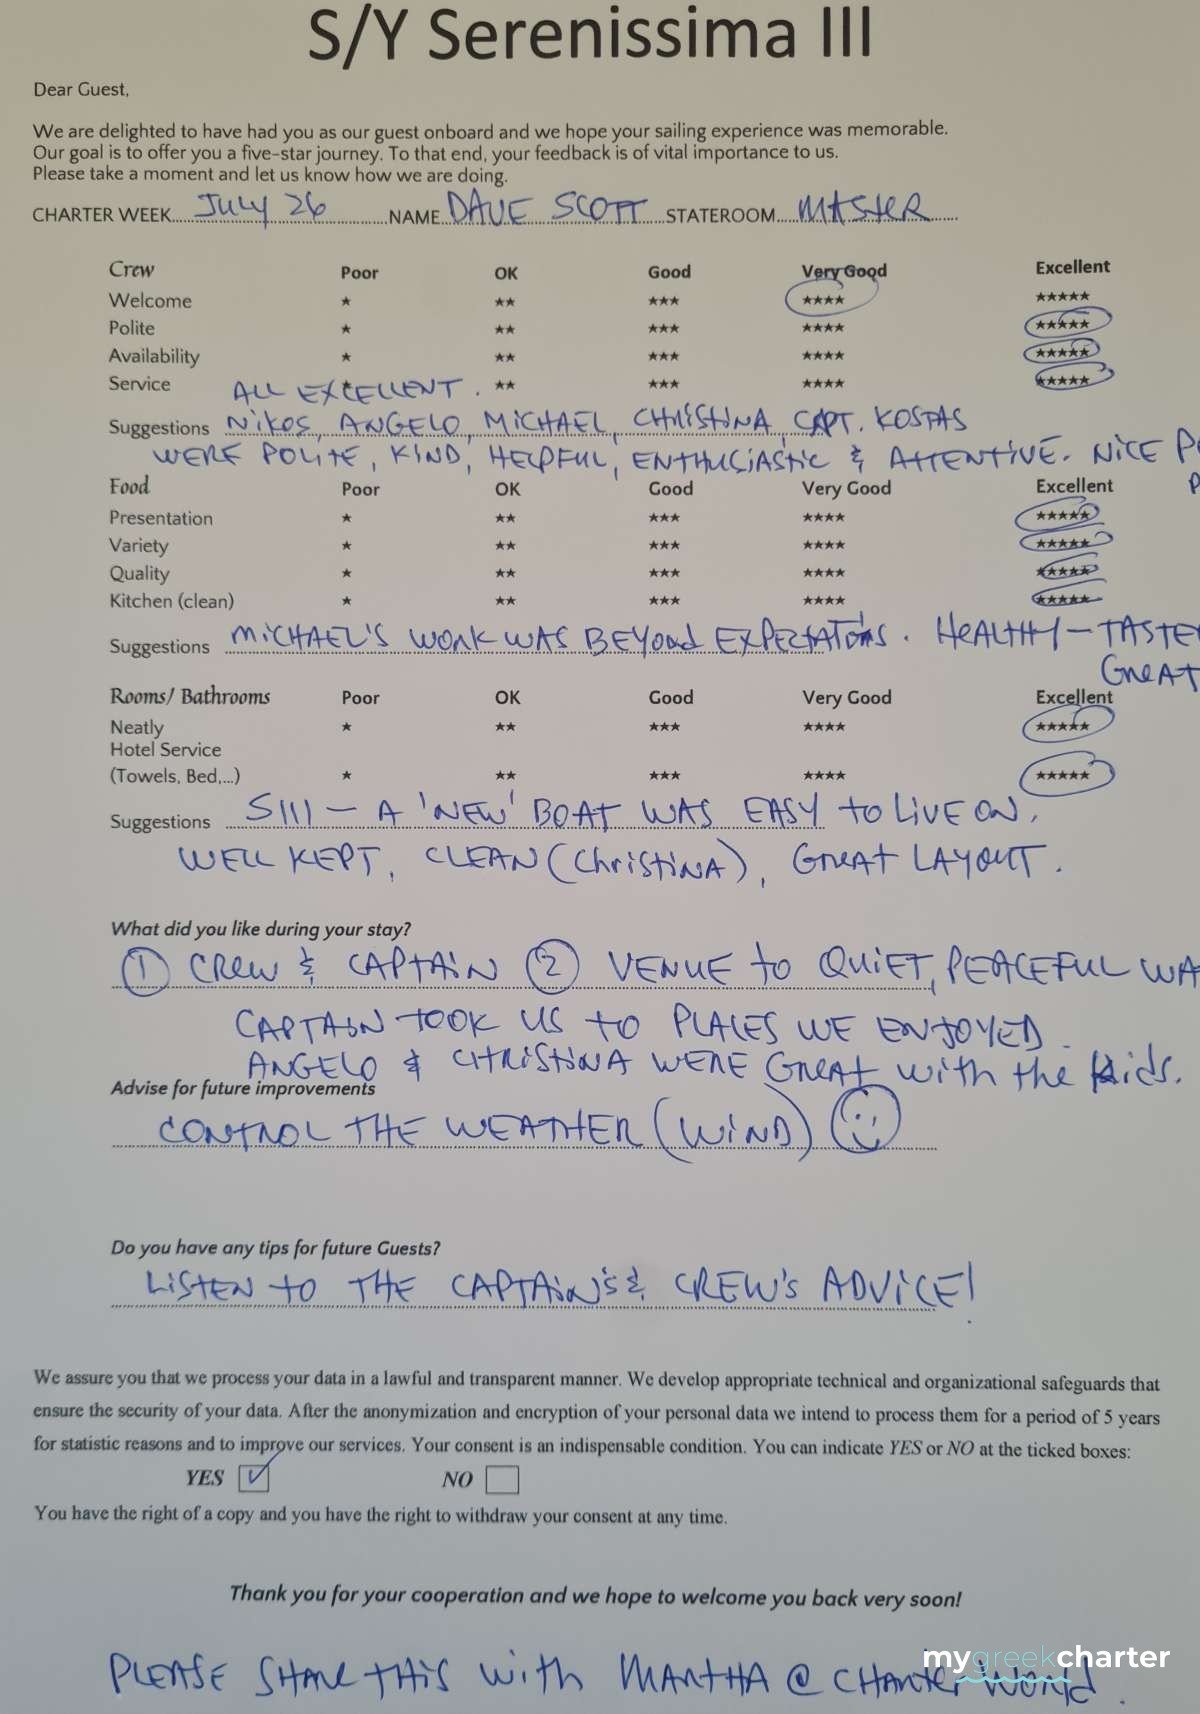 S/Y Serenissima III
Dear Guest,
We are delighted to have had you as our guest onboard and we hope your sailing experience was memorable.
Our goal is to offer you a five-star journey. To that end, your feedback is of vital importance to us.
Please take a moment and let us know how we are doing.
CHARTER WEEK July 26 NAME DAVE SCOTT STATEROOM MASTER
Crew Poor OK Good Very Good Excellent
Welcome ★ ★★ ★★★ ★★★★ ★★★★★
Polite ★ ★★ ★★★ ★★★★ ★★★★★
Availability ★ ★★ ★★★ ★★★★ ★★★★★
Service ALL EXCELLENT. ★★ ★★★ ★★★★ ★★★★★
Suggestions NIKOS, ANGELO, MICHAEL, CHRISTINA, CAPT. KOSTAS
WERE POLITE, KIND, HELPFUL, ENTHUSIASTIC & ATTENTIVE. NICE
Food Poor OK Good Very Good Excellent
Presentation ★ ★★ ★★★ ★★★★ ★★★★★
Variety ★ ★★ ★★★ ★★★★ ★★★★★
Quality ★ ★★ ★★★ ★★★★ ★★★★★
Kitchen (clean) ★ ★★ ★★★ ★★★★ ★★★★★
Suggestions MICHAEL'S WORK WAS BEYOND EXPECTATIONS. HEALTHY - TASTE
GREAT
Rooms/ Bathrooms Poor OK Good Very Good Excellent
Neatly ★ ★★ ★★★ ★★★★ ★★★★★
Hotel Service
(Towels, Bed,...) ★ ★★ ★★★ ★★★★ ★★★★★
Suggestions SIII - A 'NEW' BOAT WAS EASY TO LIVE ON.
WELL KEPT, CLEAN (CHRISTINA), GREAT LAYOUT.
What did you like during your stay?
① CREW & CAPTAIN ② VENUE TO QUIET, PEACEFUL WA
CAPTAIN TOOK US TO PLACES WE ENJOYED.
ANGELO & CHRISTINA WERE GREAT with the kids.
Advise for future improvements
CONTROL THE WEATHER (WIND) ☺
Do you have any tips for future Guests?
LISTEN TO THE CAPTAIN'S & CREW'S ADVICE!
We assure you that we process your data in a lawful and transparent manner. We develop appropriate technical and organizational safeguards that
ensure the security of your data. After the anonymization and encryption of your personal data we intend to process them for a period of 5 years
for statistic reasons and to improve our services. Your consent is an indispensable condition. You can indicate YES or NO at the ticked boxes:
YES ☑ NO ☐
You have the right of a copy and you have the right to withdraw your consent at any time.
Thank you for your cooperation and we hope to welcome you back very soon!
mygreekcharter
PLEASE SHARE THIS with MARTHA @ CHARTER WORLD.